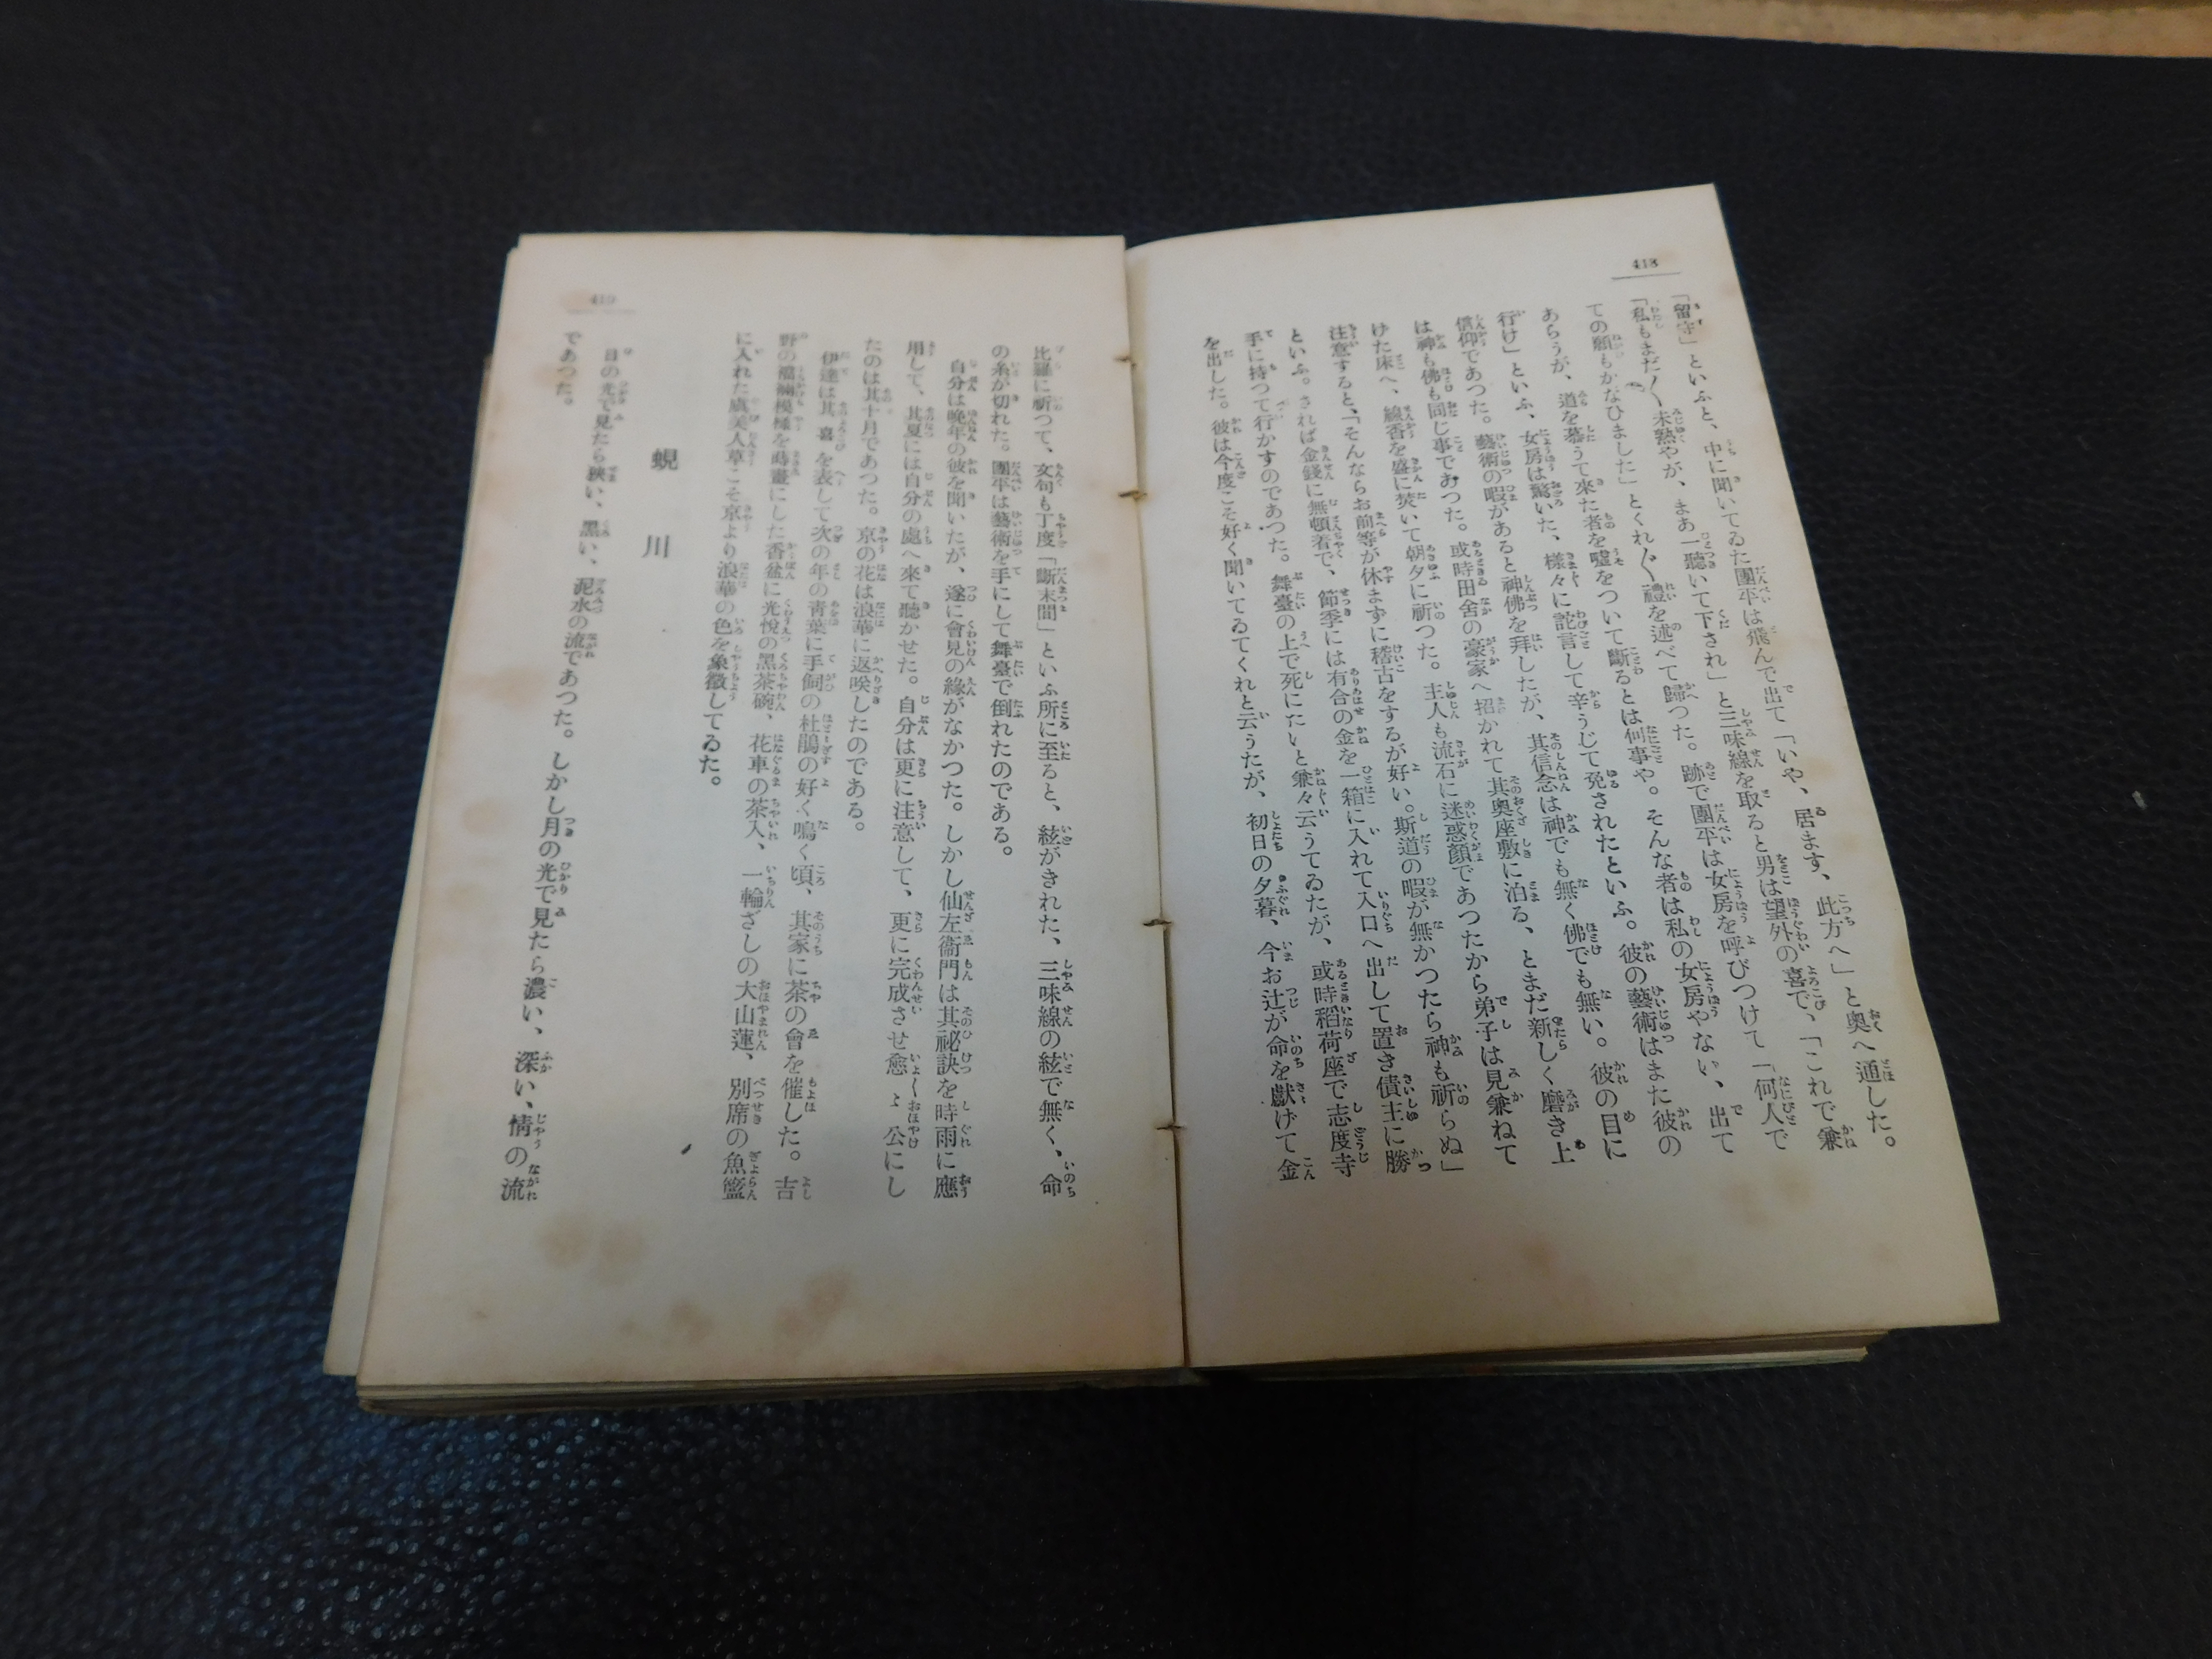 418
「留守」といふと、中に聞いてゐた團平は飛んで出て「いや、居ます、此方へ」と奥へ通した。
「私もまだ〱未熟やが、まあ一聽いて下され」と三味線を取ると男は望外の喜で、「これで兼
ての願もかなひました」とくれ〲禮を述べて歸つた。跡で團平は女房を呼びつけて「何人で
あらうが、道を慕うて來た者を嘘をついて斷るとは何事や。そんな者は私の女房やない、出て
行け」といふ、女房は驚いた、樣々に詫言して辛うじて免されたといふ。彼の藝術はまた彼の
信仰であつた。藝術の暇があると神佛を拜したが、其信念は神でも無く佛でも無い。彼の目に
は神も佛も同じ事であつた。或時田舍の豪家へ招かれて其奥座敷に泊る、とまだ新しく磨き上
けた床へ、線香を盛に焚いて朝夕に祈つた。主人も流石に迷惑顏であつたから弟子は見兼ねて
注意すると、「そんならお前等が休まずに稽古をするが好い。斯道の暇が無かつたら神も祈らぬ」
といふ。されば金錢に無頓着で、節季には有合の金を一箱に入れて入口へ出して置き債主に勝
手に持つて行かすのであつた。舞臺の上で死にたいと兼々云うてゐたが、或時稻荷座で志度寺
を出した。彼は今度こそ好く聞いてゐてくれと云うたが、初日の夕暮、今お辻が命を獻げて金
419
比羅に祈つて、文句も丁度「斷末間」といふ所に至ると、絃がきれた、三味線の絃で無く、命
の糸が切れた。團平は藝術を手にして舞臺で倒れたのである。
自分は晩年の彼を聞いたが、遂に會見の緣がなかつた。しかし仙左衞門は其祕訣を時雨に應
用して、其夏には自分の處へ來て聽かせた。自分は更に注意して、更に完成させ愈〻公にし
たのは其十月であつた。京の花は浪華に返咲したのである。
伊達は其喜を表して次の年の靑葉に手飼の杜鵑の好く鳴く頃、其家に茶の會を催した。吉
野の裲襠模樣を蒔畫にした香盆に光悅の黑茶碗、花車の茶入、一輪ざしの大山蓮、別席の魚籃
に入れた虞美人草こそ京より浪華の色を象徵してゐた。
蜆川
日の光で見たら狹い、黑い、泥水の流であつた。しかし月の光で見たら濃い、深い、情の流
であつた。